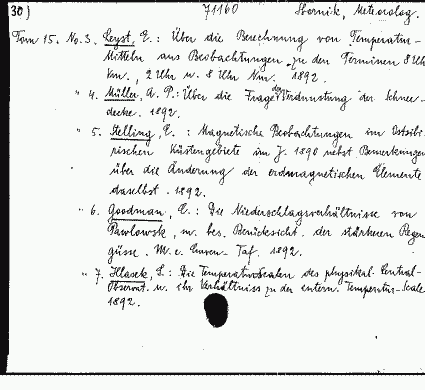 30) 71160 Sbornik, Meteorolog.
Tom 15. No. 3. Leyst, E.: Über die Berechnung von Temperatur-
Mitteln aus Beobachtungen zu den Terminen 8 Uhr
Vm., 2 Uhr u. 8 Uhr Nm. 1892.
" 4. Müller, A. P.: Über die Frage der Verdunstung der Schnee-
decke. 1892.
" 5. Stelling, E.: Magnetische Beobachtungen im Ostsibi-
rischen Küstengebiete im J. 1890 nebst Bemerkungen
über die Änderung der erdmagnetischen Elemente
daselbst. 1892.
" 6. Goodman, C.: Die Niederschlagsverhältnisse von
Pawlowsk, m. bes. Berücksicht. der stärkeren Regen-
güsse. M. e. Curven-Taf. 1892.
" 7. Hlasek, S.: Die Temperaturscalen des physikal. Central-
Observat. u. ihr Verhältniss zu der intern. Temperatur-Scale
1892.